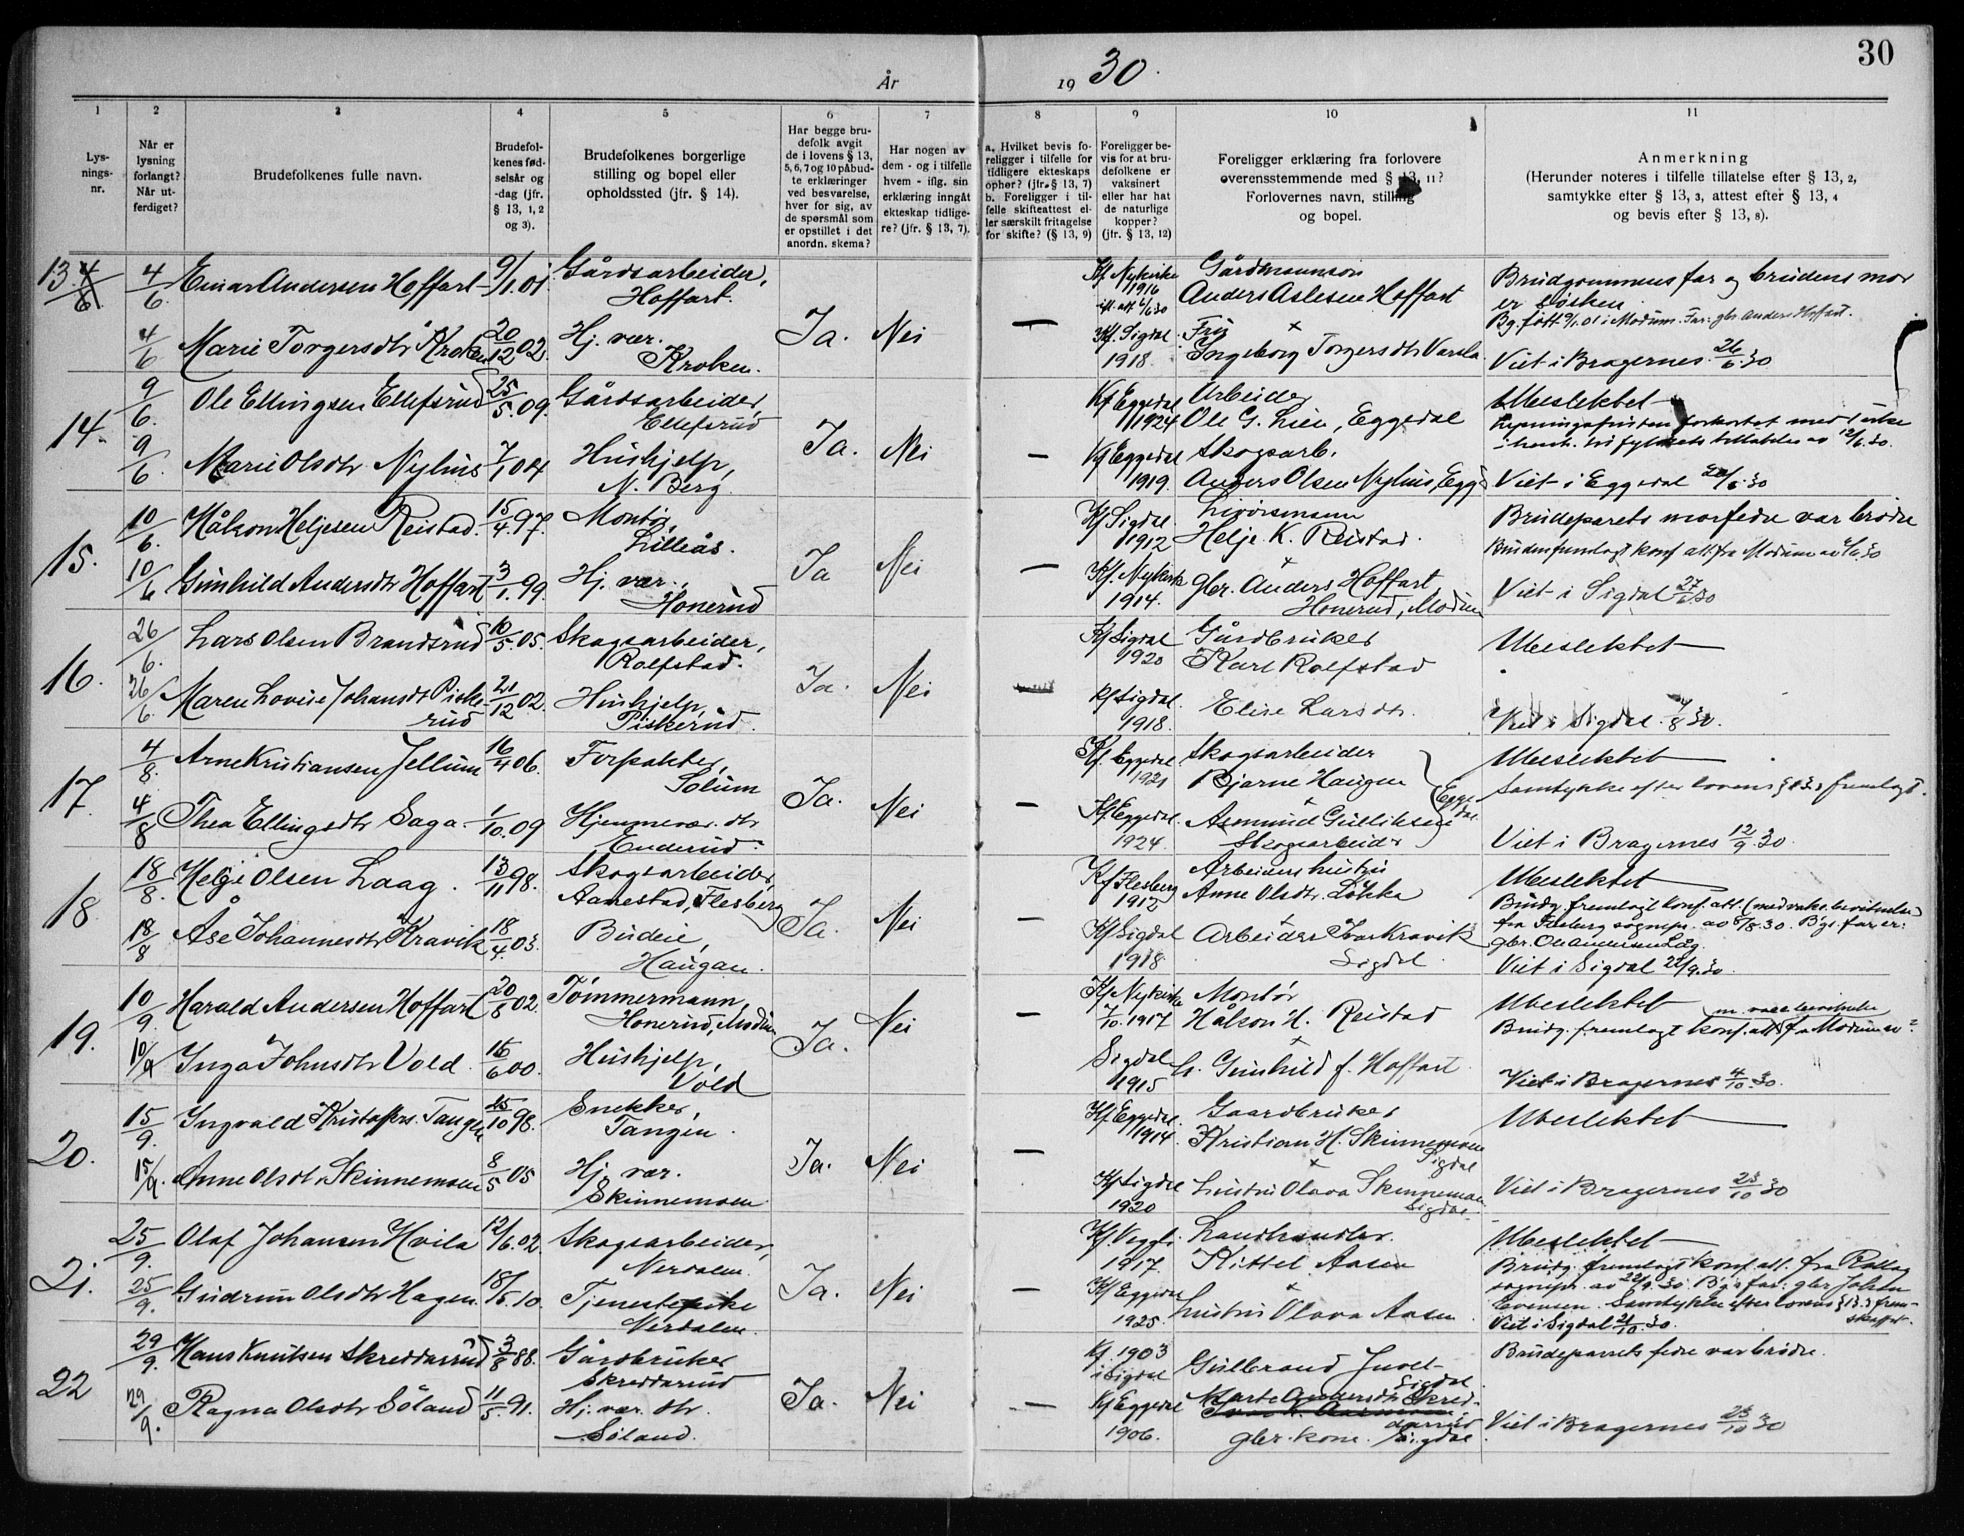 30
År 19 30.
1 2 3 4 5 6 7 8 9 10 11
Lys-
nings-
nr.
Når er
lysning
forlangt?
Når ut-
ferdiget?
Brudefolkenes fulle navn.
Brudefol-
kenes fød-
selsår og
-dag (jfr.
§ 13, 1, 2
og 3).
Brudefolkenes borgerlige
stilling og bopel eller
opholdssted (jfr. § 14).
Har begge bru-
defolk avgit
de i lovens § 13,
5, 6, 7 og 10 påbud-
te erklæringer
ved besvarelse,
hver for sig, av
de spørsmål som
er opstillet i det
anordn. skema?
Har nogen av
dem - og i tilfelle
hvem - iflg. sin
erklæring inngåt
ekteskap tidlige-
re? (jfr. § 13, 7).
a. Hvilket bevis fo-
religger i tilfelle for
tidligere ekteskaps
ophør? (jfr. § 13, 7)
b. Foreligger i til-
felle skifteattest el-
ler særskilt fritagelse
for skifte? (§ 13, 9)
Foreligger be-
vis for at bru-
defolkene er
vaksinert
eller har hat
de naturlige
kopper?
(jfr. § 13, 12)
Foreligger erklæring fra forlovere
overensstemmende med § 13, 11?
Forlovernes navn, stilling
og bopel.
Anmerkning
(Herunder noteres i tilfelle tillatelse efter § 13, 2,
samtykke efter § 13, 3, attest efter § 13, 4
og bevis efter § 13, 8).
13. 4/6 4/6 Einar Andersen Hoffart 9/1.01. Gårdsarbeider,
Hoffart.
4/6 Marie Torgersdtr Kroken 20/12 02. Hj. vær.
Kroken.
Ja. Nei —
Kf. Nykirke
1916
Kf. Sigdal
1918.
Gårdmannsøn
Anders Aslesen Hoffart
Ingeborg Torgersdtr
Brudgommens far og brudens mor
er søsken.
Bg. født 9/1.01 i Modum. Far: gbr. Anders Hoffart.
Viet i Bragernes 26/6.30
14. 9/6 Ole Ellingsen Ellefsrud 25/5.09. Gårdsarbeider,
Ellefsrud
9/6 Marie Olsdtr Nyhus 7/1 04 Hushjelp,
N. Berg.
Ja. Nei —
Kf Eggedal
1924
Kf Eggedal
1919.
Arbeider
Ole G. Lien, Eggedal
Skogsarb.
Anders Olsen Nyhus, Egg
Ubeslektet
Lysningsfristen forkortet med 1 uke
Viet i Eggedal
15. 10/6 Håkon Heljesen Reistad. 15/4.97. Montør,
Lilleås.
10/6 Gunhild Andersdtr Hoffart 3/1.99. Hj. vær.,
Honerud
Ja Nei —
Kf Sigdal
1912
Kf. Nykirke
1914.
Livørsmann
Helje K. Reistad.
gbr. Anders Hoffart
Honerud, Modum
Brudeparets morfedre var brødre
Bruden fremlagt konf. att. fra Modum
Viet i Sigdal 27/6 30
16. 26/6. Lars Olsen Brandsrud 10/5.05. Skogsarbeider,
Rolfstad.
26/6. Maren Lovise Johansdtr Piske-
rud 21/12 02. Hushjelp,
Piskerud.
Ja. Nei —
Kf Sigdal
1920
Kf Sigdal.
1918.
Gårdbruker
Karl Rolfstad
Elise Larsdtr.
Ubeslektet
Viet i Sigdal 8.30.
17. 4/8. Arne Kristiansen Jellum 16/4 06. Forpakter,
Solum
4/8 Thea Ellingsdtr Saga. 1/10.09 Hjemmevær. dtr
Enderud.
Ja. Nei —
Kf. Eggedal
1921
Kf Eggedal.
1924.
Skogsarbeider
Bjarne Haugen
Asmund Gulliksen
Skogsarbeider
Eggedal
Ubeslektet
Samtykke efter lovens § 13.3 fremlagt.
Viet i Bragernes 12/9.30.
18 18/8. Helje Olsen Laag. 13/11 98. Skogsarbeider,
Aanestad, Flesberg
18/8 Åse Johannesdtr Kravik 18/4.03. Budeie,
Haugan.
Ja. Nei —
Kf Flesberg
1912
Kf Sigdal
1918
Arbeiderhustru
Anne Olsdtr. Løkka
Arbeider Ivar Kravik
Sigdal.
Ubeslektet
Brudg. fremlagt konf. att. (med vaks. bevitnelse)
fra Flesberg sognepr. av 8.30. Bgs far er:
gbr. Ole Andersen Låg.
Viet i Sigdal 9.30.
19. 10/9. Harald Andersen Hoffart 20/8 02. Tømmermann,
Honerud, Modum
10/9 Inga Johnsdtr Vold. 16/6 00. Hushjelp,
Vold
Ja. Nei —
Kf. Nykirke
7/10.1917
Sigdal
1915
Montør
Håkon H. Reistad
h. Gunhild f. Hoffart.
Ubeslektet
Brudg. fremlagt konf. att. fra Modum
Viet i Bragernes 4/10.30.
20. 15/9. Ingvald Kristoffers. Tangen 25/10 98. Snekker,
Tangen.
15/9. Anne Olsdtr Skinnemoen 8/5 05 Hj. vær.
Skinnemoen
Ja. Nei —
Kf. Eggedal.
1914.
Kf Sigdal
1920
Gaardbruker
Kristian H. Skinnemoen
Sigdal
hustru Olava Skinnemoen
Sigdal.
Ubeslektet
Viet i Bragernes 10.30
21. 25/9. Olaf Johansen Hvila 12/6.02 Skogsarbeider,
Nerdalen.
25/9. Gudrun Olsdtr Hagen. 18/5.10. Tjenestepike
Nerdalen.
Ja. Nei —
1917.
Kf Eggedal
1925.
Landhandler.
Kittel Aasen
hustru Olava Aasen
Ubeslektet
Brudg. fremlagt konf. att. fra Rollag
sognepr. av 22/9.30. Bgs far: gbr. Johan
Evensen. Samtykke efter lovens § 13.3 frem-
Viet i Sigdal 10.30.
22 29/9. Hans Knutsen Skreddarrud 3/8 88. Gårdbruker
Skreddarrud
29/9. Ragna Olsdtr Søland 11/5. 91. Hj. vær. dtr.
Søland.
Ja. Nei —
Kf. 1903
i Sigdal
Kf Eggedal
1906.
Gulbrand Juvet
Sigdal
Marte Andersdtr Skred-
darrud
gbr. kone. Sigdal
Brudeparrets fedre var brødre.
Viet i Bragernes 10.30